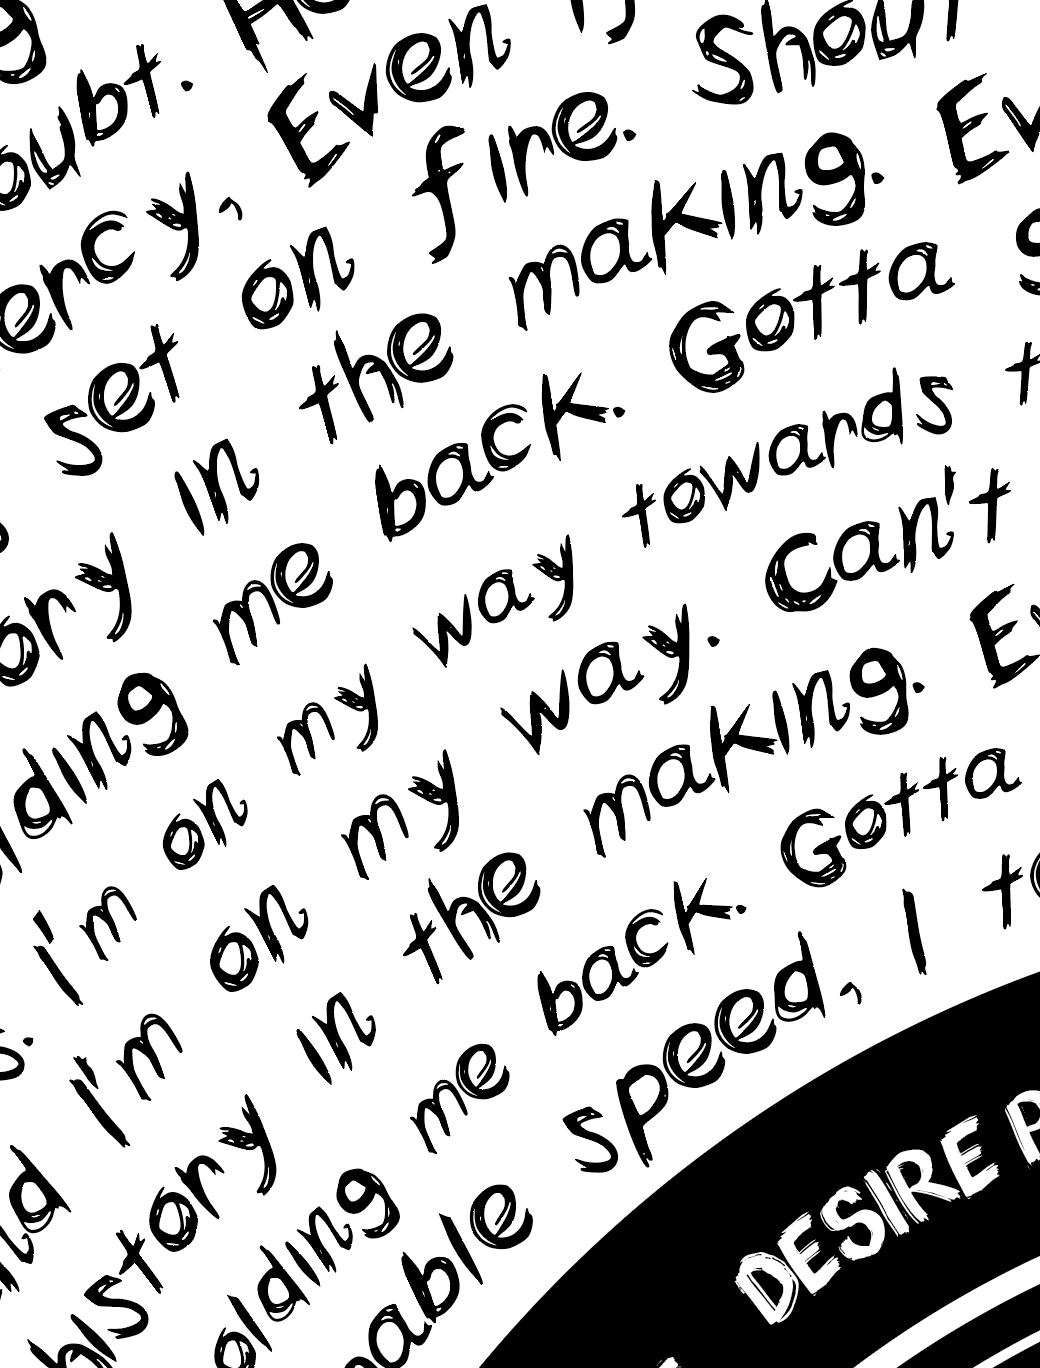 oubt.
ercy, Even
set on fire. Shou
ory in the making. Ev
lding me back. Gotta
s. I'm on my way towards t
nd I'm on my way. Can't
history in the making. Ev
olding me back. Gotta
able speed, I t
DESIRE